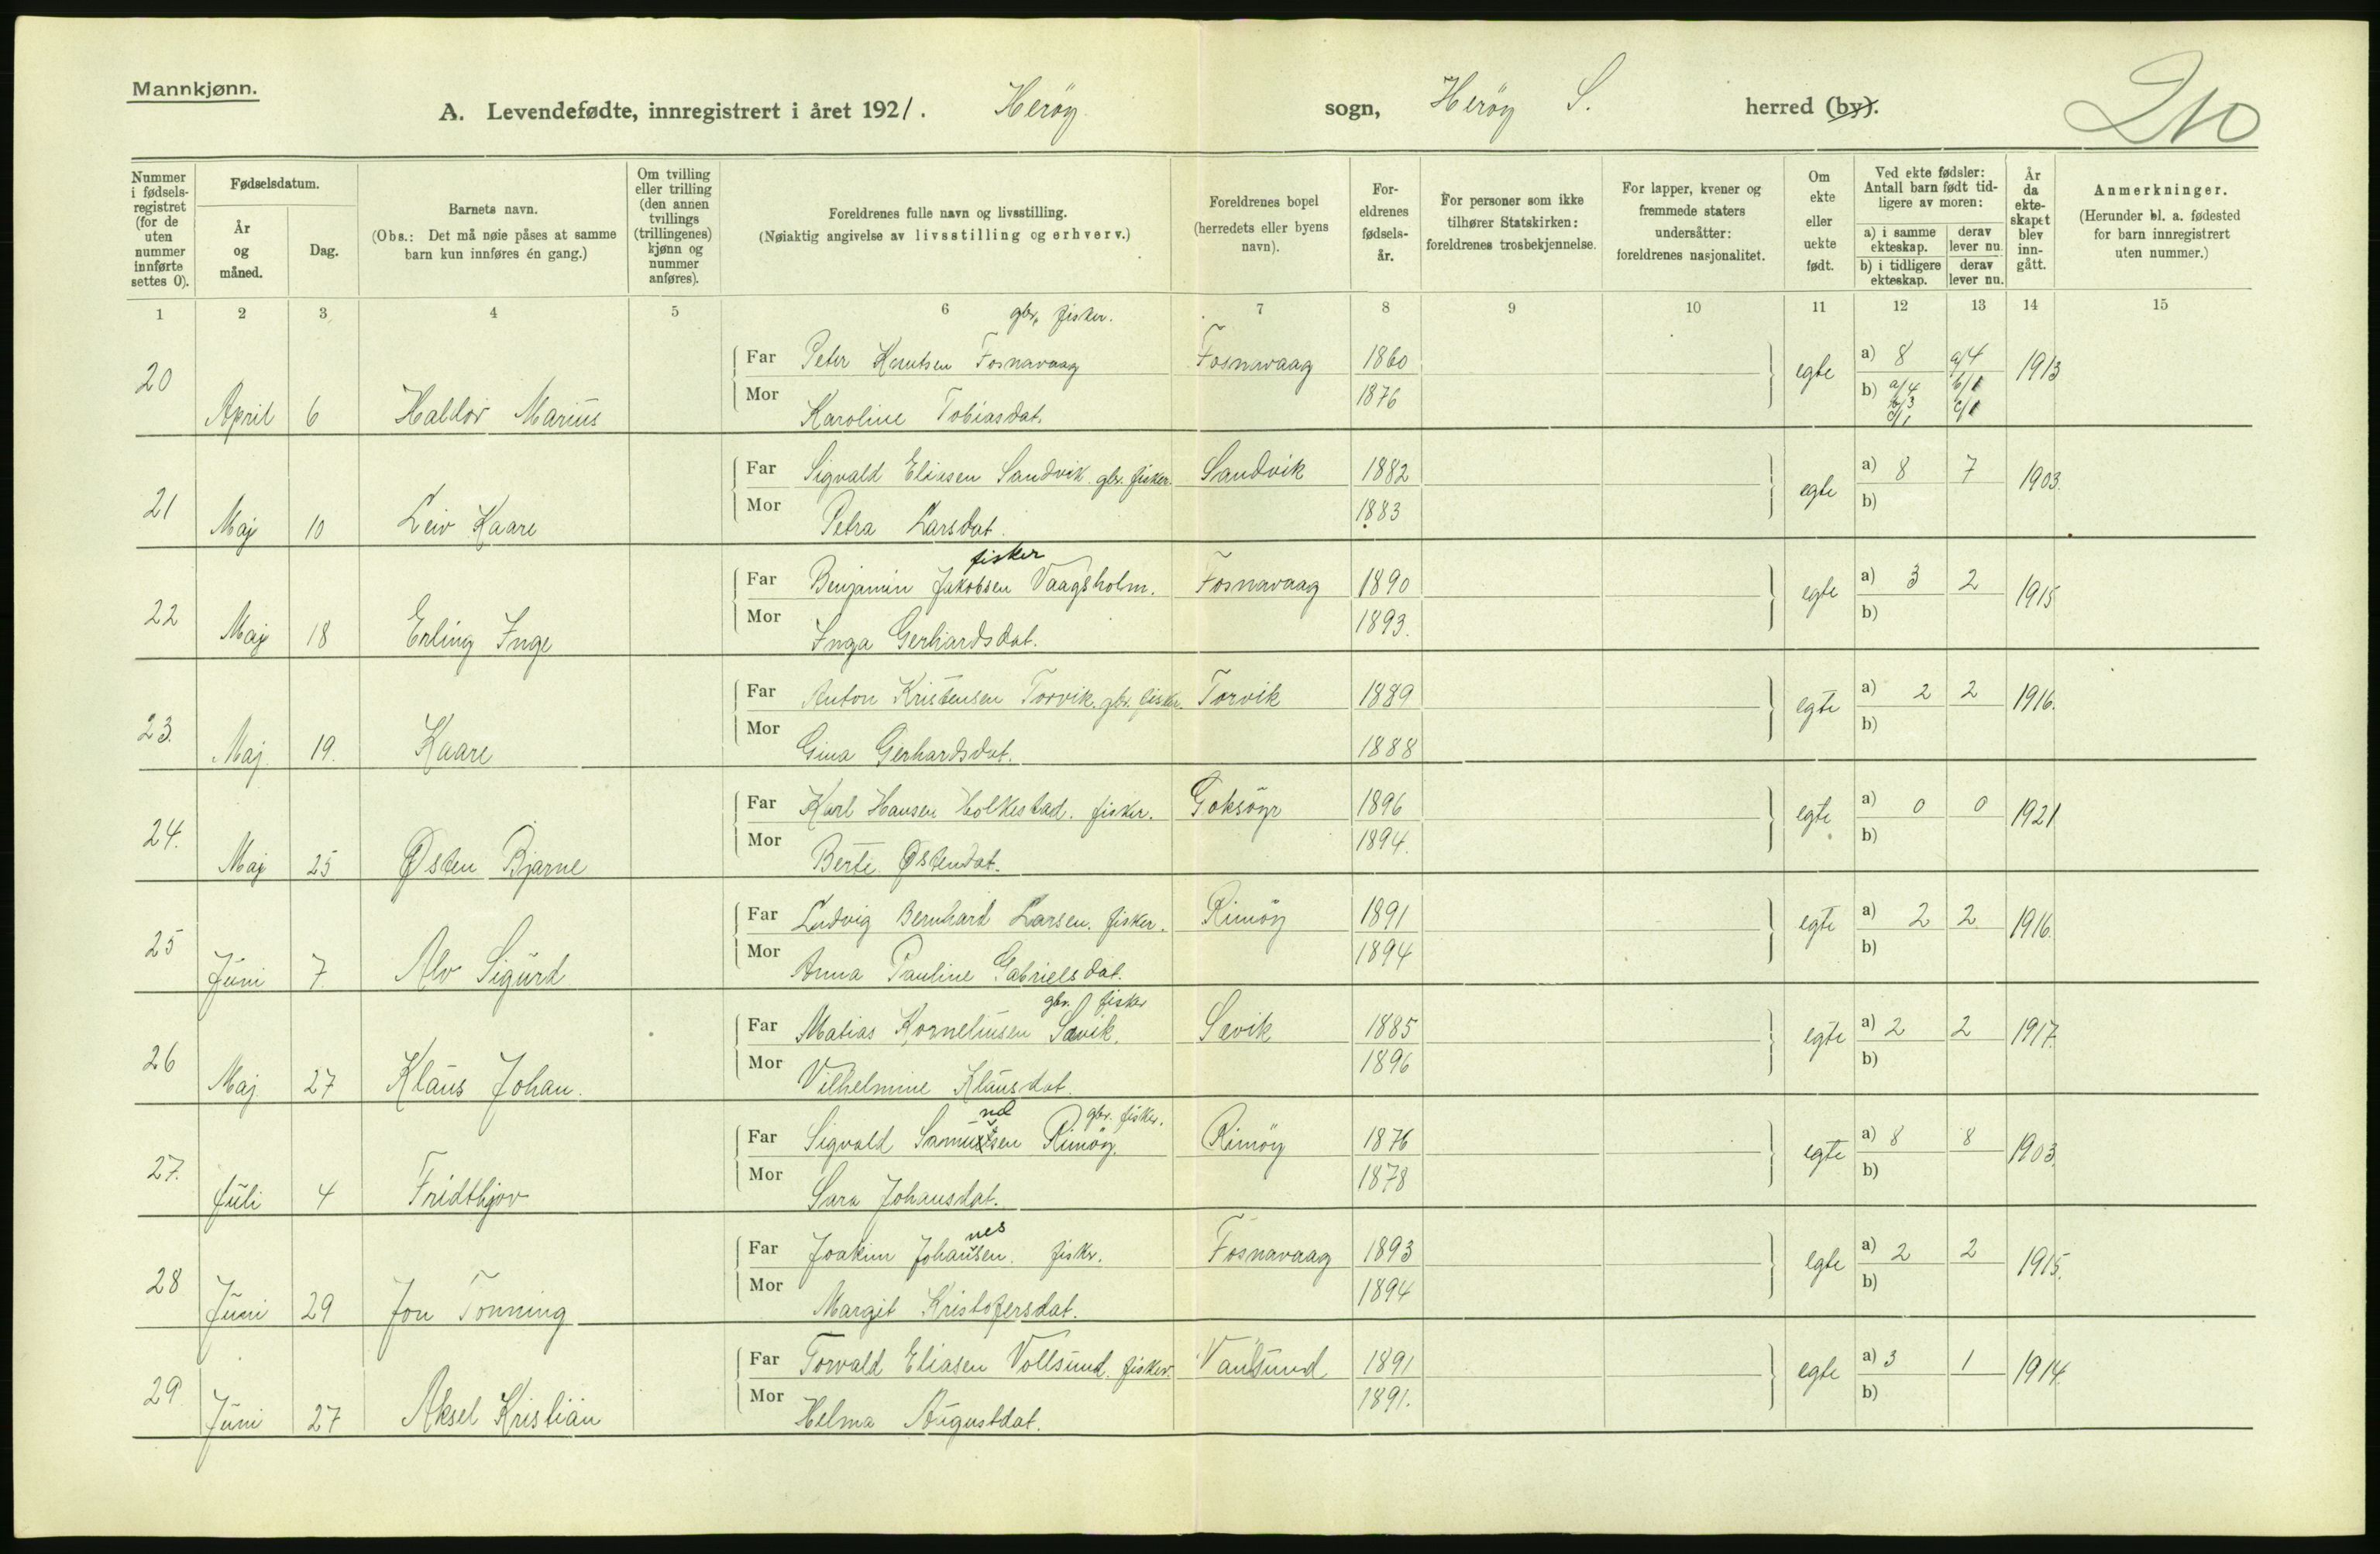 Mannkjønn.
A. Levendefødte, innregistrert i året 1921. Herøy sogn, Herøy S. herred (by).
Nummer i fødselsregistret (for de uten nummer innførte settes 0).
Fødselsdatum.
År og måned.
Dag.
Barnets navn.
(Obs.: Det må nøie påses at samme barn kun innføres én gang.)
Om tvilling eller trilling (den annen tvillings (trillingenes) kjønn og nummer anføres).
Foreldrenes fulle navn og livsstilling.
(Nøiaktig angivelse av livsstilling og erhverv.)
Foreldrenes bopel (herredets eller byens navn).
Foreldrenes fødselsår.
For personer som ikke tilhører Statskirken: foreldrenes trosbekjennelse.
For lapper, kvener og fremmede staters undersåtter: foreldrenes nasjonalitet.
Om ekte eller uekte født.
Ved ekte fødsler: Antall barn født tidligere av moren:
a) i samme ekteskap. derav lever nu.
b) i tidligere ekteskap. derav lever nu.
År da ekteskapet blev inngått.
Anmerkninger.
(Herunder bl. a. fødested for barn innregistrert uten nummer.)
1 2 3 4 5 6 7 8 9 10 11 12 13 14 15
gbr. fisker.
Far Peter Knutsen Fosnavaag Fosnavaag 1860 a) 8 a/4
20 April 6 Haldor Marius egte 1913
Mor Karoline Tobiasdat. 1876 b) a/4 b/1
b/3 c/1
c/1
Far Sigvald Eliasen Sandvik gbr. fisker. Sandvik 1882 a) 8 7
21 Maj 10 Leiv Kaare egte 1903.
Mor Petra Larsdat. 1883 b)
fisker
Far Benjamin Jakobsen Vaagsholm. Fosnavaag 1890 a) 3 2
22 Maj 18 Erling Inge egte 1915
Mor Inga Gerhardsdat. 1893. b)
Far Anton Kristensen Torvik. gbr. fisker. Torvik 1889 a) 2 2
23. Maj 19. Kaare egte 1916.
Mor Gina Gerhardsdat. 1888 b)
Far Karl Hansen Holkestad. fisker. Goksöyr 1896 a) 0 0
24. Maj 25 Østen Bjarne egte 1921
Mor Berte Østendat. 1894. b)
Far Ludvig Bernhard Larsen. fisker. Rimöy 1891 a) 2 2
25 Juni 7 Alv Sigurd egte 1916.
Mor Anna Pauline Gabrielsdat. 1894 b)
gbr. fisker
Far Matias Korneliusen Sævik. Sævik 1885 a) 2 2
26 Maj 27 Klaus Johan. egte 1917.
Mor Vilhelmine Klausdat. 1896 b)
gbr. fisker.
Far Sigvald Samuelsen Rimöy. Rimöy 1876 a) 8 8
27. Juli 4 Fridthjov egte 1903.
Mor Sara Johansdat. 1878 b)
nes
Far Joakim Johansen. fisker. Fosnavaag 1893 a) 2 2
28 Juni 29 Jon Tonning egte 1915.
Mor Margit Kristofersdat. 1894 b)
Far Torvald Eliasen Vollsund. fisker. 1891 a) 3 1
29 Juni 27 Aksel Kristian egte 1914.
Mor Helma Augustdat. 1891. b)